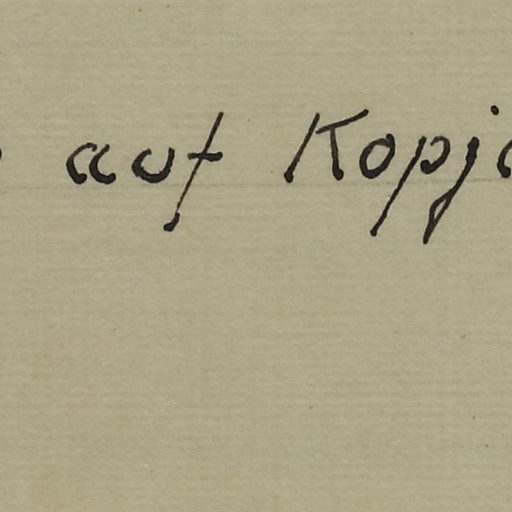 auf Kopj